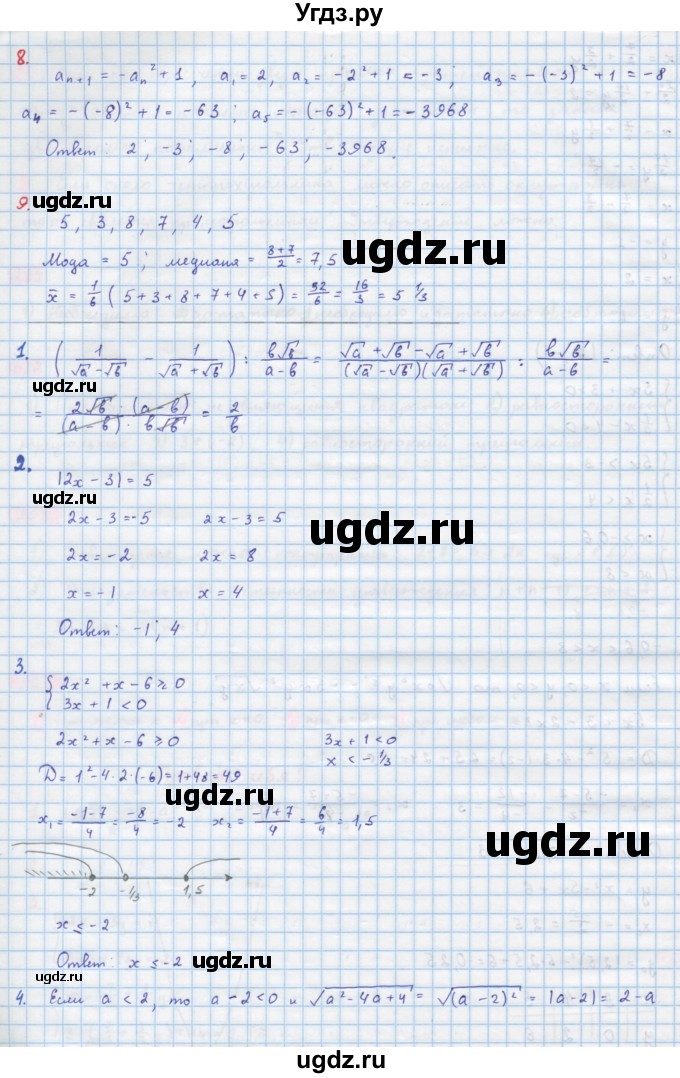 Угдз.ру
8.
aₙ₊₁ = -aₙ² + 1, a₁ = 2, a₂ = -2² + 1 = -3; a₃ = -(-3)² + 1 = -8
a₄ = -(-8)² + 1 = -63; a₅ = -(-63)² + 1 = -3968
Ответ: 2; -3; -8; -63; -3968.
ugdz.ru
9.
5, 3, 8, 7, 4, 5
Мода = 5; медиана = (8+7)/2 = 7,5
ugdz.ru
x̄ = 1/6 (5+3+8+7+4+5) = 32/6 = 16/3 = 5 1/3
1. (1/(√a - √b) - 1/(√a + √b)) : b√b/(a-b) = (√a + √b - √a + √b)/((√a - √b)(√a + √b)) : b√b/(a-b) =
ugdz.ru
= 2√b (a-b)/((a-b) · b√b) = 2/b
2.
|2x - 3| = 5
ugdz.ru
2x - 3 = -5 2x - 3 = 5
ugdz.ru
2x = -2 2x = 8
x = -1 x = 4
Ответ: -1; 4
ugdz.ru
3.
{ 2x² + x - 6 ≥ 0
{ 3x + 1 < 0
2x² + x - 6 ≥ 0 3x + 1 < 0
x < -1/3
D = 1² - 4·2·(-6) = 1 + 48 = 49
ugdz.ru
x₁ = (-1-7)/4 = -8/4 = -2 x₂ = (-1+7)/4 = 6/4 = 1,5
ugdz.ru
-2 -1/3 1,5
x ≤ -2
Ответ: x ≤ -2
ugdz.ru
ugdz.ru
4. Если a < 2, то a - 2 < 0 и √(a² - 4a + 4) = √((a - 2)²) = |a - 2| = 2 - a
ugdz.ru
ugdz.ru